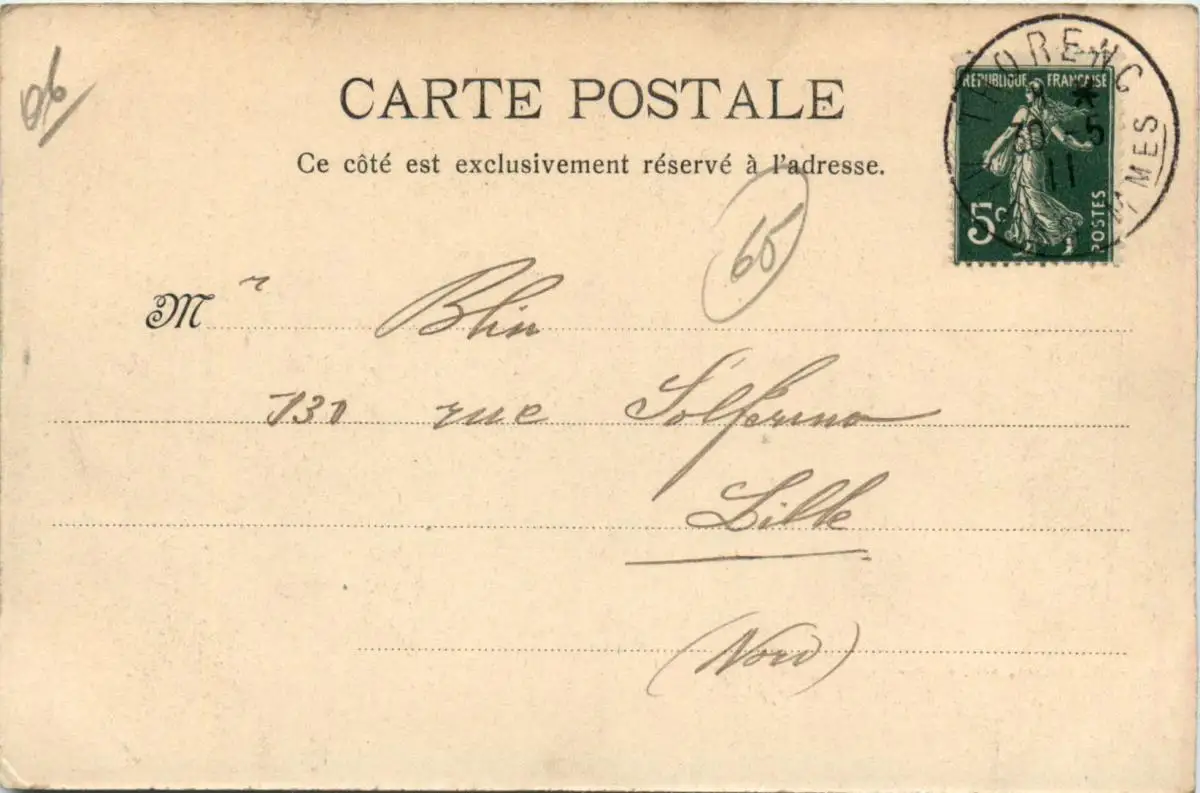 06
CARTE POSTALE
Ce côté est exclusivement réservé à l'adresse.
THORENC
30 -5
11
MMES
REPUBLIQUE FRANÇAISE
5c
POSTES
65
Mr Blin
131 rue Solferino
Lille
(Nord)